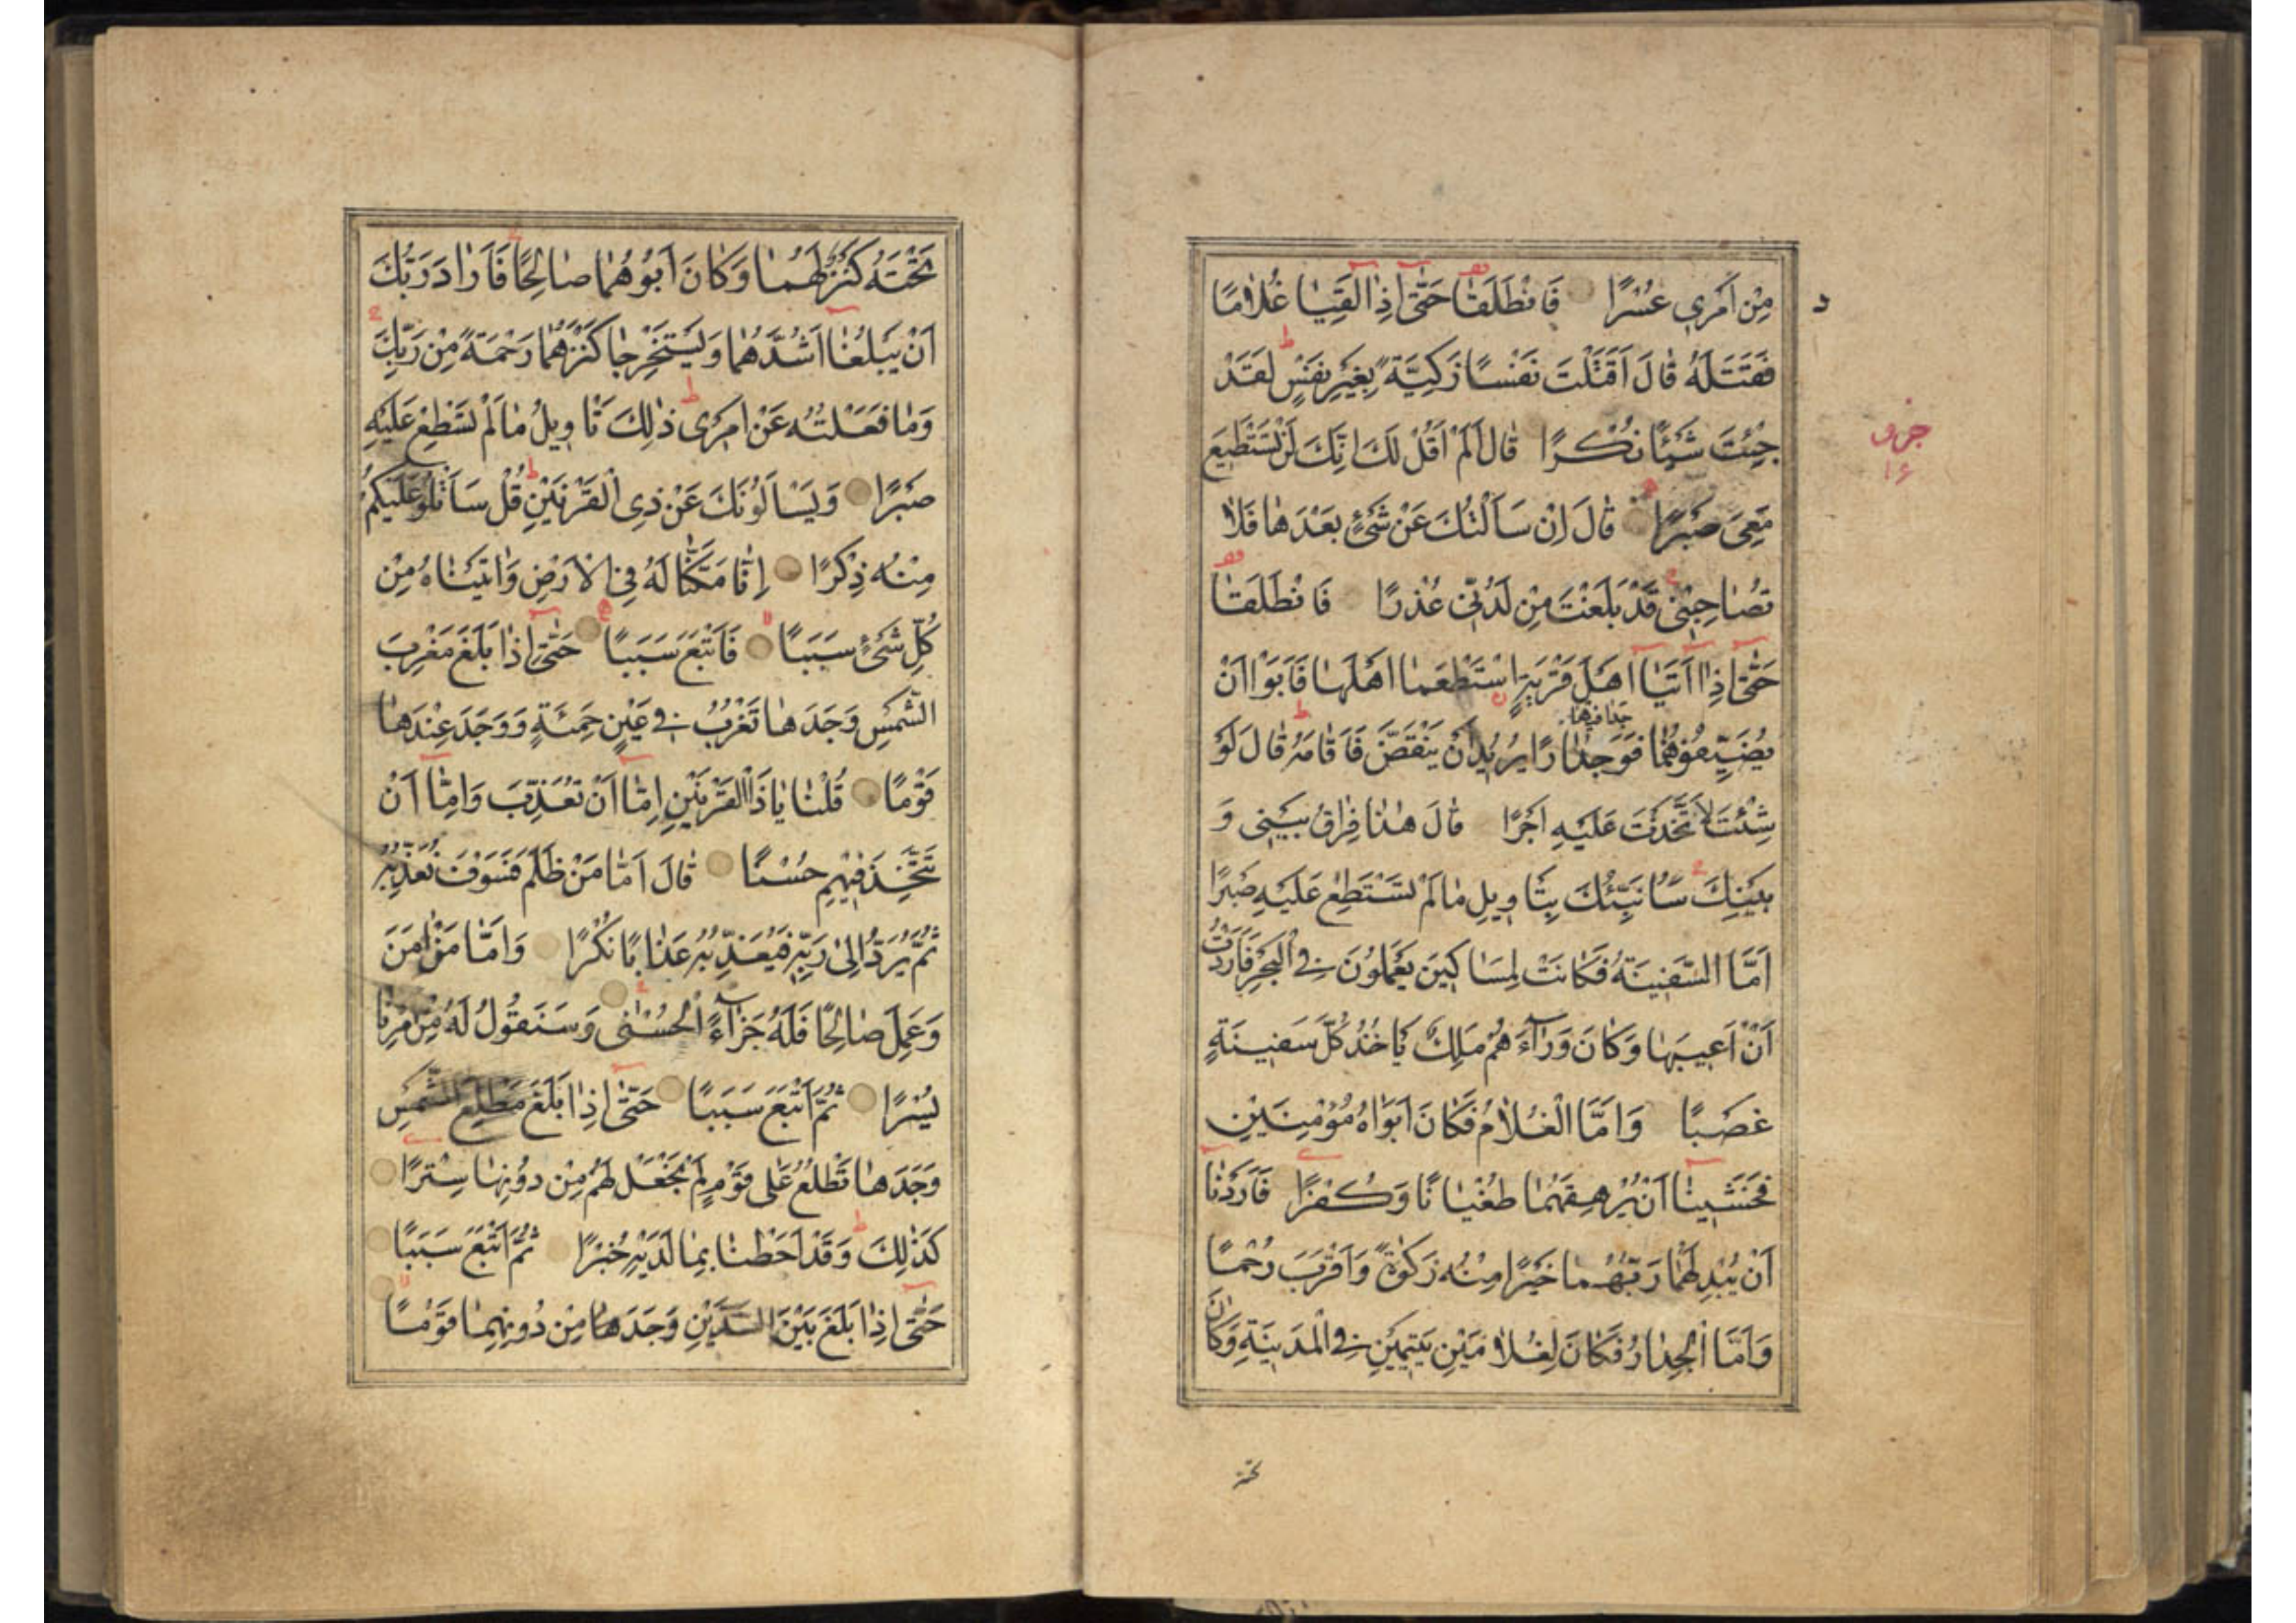 مِنْ اَمْرِى عُسْرًا فَانْطَلَقَا حَتّٰى اِذَا لَقِيَا غُلَامًا
فَقَتَلَهُ قَالَ اَقَتَلْتَ نَفْسًا زَكِيَّةً بِغَيْرِ نَفْسٍ لَقَدْ
جِئْتَ شَيْئًا نُكْرًا قَالَ اَلَمْ اَقُلْ لَكَ اِنَّكَ لَنْ تَسْتَطِيعَ
جزو
١٦
مَعِىَ صَبْرًا قَالَ اِنْ سَاَلْتُكَ عَنْ شَىْءٍ بَعْدَهَا فَلَا
تُصَاحِبْنِى قَدْ بَلَغْتَ مِنْ لَدُنِّى عُذْرًا فَانْطَلَقَا
حَتّٰى اِذَا اَتَيَا اَهْلَ قَرْيَةٍ اسْتَطْعَمَا اَهْلَهَا فَاَبَوْا اَنْ
يُضَيِّفُوهُمَا فَوَجَدَا فيها جِدَارًا يُرِيدُ اَنْ يَنْقَضَّ فَاَقَامَهُ قَالَ لَوْ
شِئْتَ لَاتَّخَذْتَ عَلَيْهِ اَجْرًا قَالَ هٰذَا فِرَاقُ بَيْنِى وَ
بَيْنِكَ سَاُنَبِّئُكَ بِتَاْوِيلِ مَا لَمْ تَسْتَطِعْ عَلَيْهِ صَبْرًا
اَمَّا السَّفِينَةُ فَكَانَتْ لِمَسَاكِينَ يَعْمَلُونَ فِى الْبَحْرِ فَاَرَدْتُ
اَنْ اَعِيبَهَا وَكَانَ وَرَاءَهُمْ مَلِكٌ يَاْخُذُ كُلَّ سَفِينَةٍ
غَصْبًا وَاَمَّا الْغُلَامُ فَكَانَ اَبَوَاهُ مُؤْمِنَيْنِ
فَخَشِينَا اَنْ يُرْهِقَهُمَا طُغْيَانًا وَكُفْرًا فَاَرَدْنَا
اَنْ يُبْدِلَهُمَا رَبُّهُمَا خَيْرًا مِنْهُ زَكٰوةً وَاَقْرَبَ رُحْمًا
وَاَمَّا الْجِدَارُ فَكَانَ لِغُلَامَيْنِ يَتِيمَيْنِ فِى الْمَدِينَةِ وَكَانَ
تحته
تَحْتَهُ كَنْزٌ لَهُمَا وَكَانَ اَبُوهُمَا صَالِحًا فَاَرَادَ رَبُّكَ
اَنْ يَبْلُغَا اَشُدَّهُمَا وَيَسْتَخْرِجَا كَنْزَهُمَا رَحْمَةً مِنْ رَبِّكَ
وَمَا فَعَلْتُهُ عَنْ اَمْرِى ذٰلِكَ تَاْوِيلُ مَا لَمْ تَسْطِعْ عَلَيْهِ
صَبْرًا وَيَسْاَلُونَكَ عَنْ ذِى الْقَرْنَيْنِ قُلْ سَاَتْلُو عَلَيْكُمْ
مِنْهُ ذِكْرًا اِنَّا مَكَّنَّا لَهُ فِى الْاَرْضِ وَاٰتَيْنَاهُ مِنْ
كُلِّ شَىْءٍ سَبَبًا فَاَتْبَعَ سَبَبًا حَتّٰى اِذَا بَلَغَ مَغْرِبَ
الشَّمْسِ وَجَدَهَا تَغْرُبُ فِى عَيْنٍ حَمِئَةٍ وَوَجَدَ عِنْدَهَا
قَوْمًا قُلْنَا يَا ذَا الْقَرْنَيْنِ اِمَّا اَنْ تُعَذِّبَ وَاِمَّا اَنْ
تَتَّخِذَ فِيهِمْ حُسْنًا قَالَ اَمَّا مَنْ ظَلَمَ فَسَوْفَ نُعَذِّبُهُ
ثُمَّ يُرَدُّ اِلٰى رَبِّهِ فَيُعَذِّبُهُ عَذَابًا نُكْرًا وَاَمَّا مَنْ اٰمَنَ
وَعَمِلَ صَالِحًا فَلَهُ جَزَاءً الْحُسْنٰى وَسَنَقُولُ لَهُ مِنْ اَمْرِنَا
يُسْرًا ثُمَّ اَتْبَعَ سَبَبًا حَتّٰى اِذَا بَلَغَ مَطْلِعَ الشَّمْسِ
وَجَدَهَا تَطْلُعُ عَلٰى قَوْمٍ لَمْ نَجْعَلْ لَهُمْ مِنْ دُونِهَا سِتْرًا
كَذٰلِكَ وَقَدْ اَحَطْنَا بِمَا لَدَيْهِ خُبْرًا ثُمَّ اَتْبَعَ سَبَبًا
حَتّٰى اِذَا بَلَغَ بَيْنَ السَّدَّيْنِ وَجَدَ مِنْ دُونِهِمَا قَوْمًا